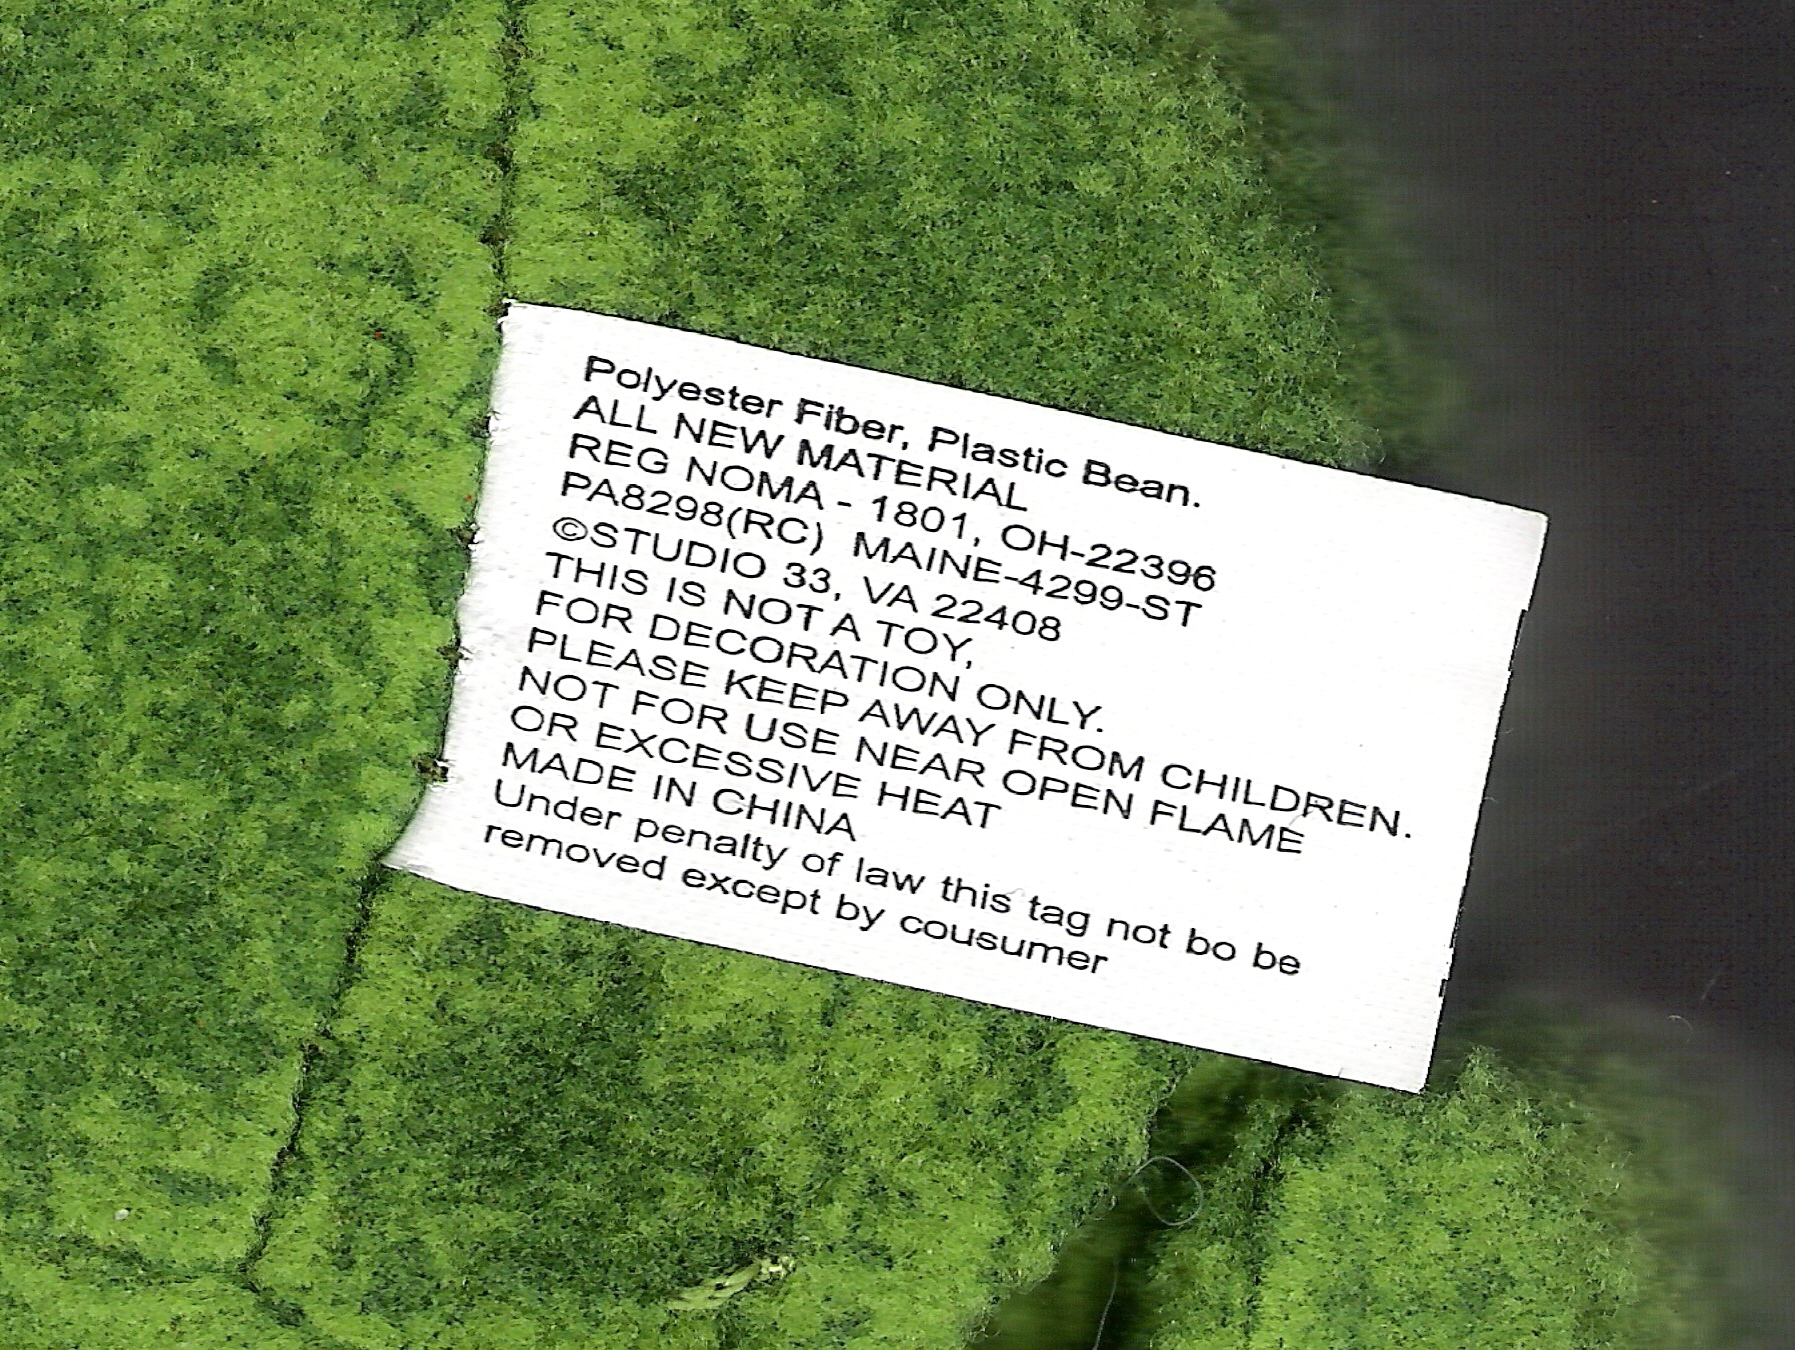 Polyester Fiber, Plastic Bean.
ALL NEW MATERIAL
REG NOMA - 1801, OH-22396
PA8298(RC) MAINE-4299-ST
©STUDIO 33, VA 22408
THIS IS NOT A TOY,
FOR DECORATION ONLY.
PLEASE KEEP AWAY FROM CHILDREN.
NOT FOR USE NEAR OPEN FLAME
OR EXCESSIVE HEAT
MADE IN CHINA
Under penalty of law this tag not bo be
removed except by cousumer